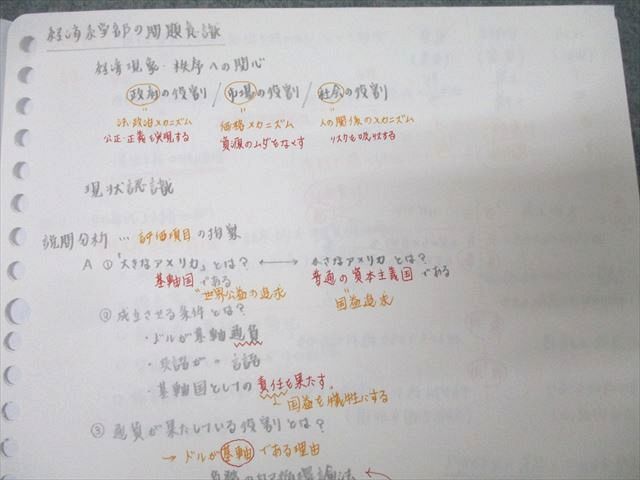 経済系学部の問題意識
経済現象・秩序への関心
政府の役割 / 市場の役割 / 社会の役割
法、政治メカニズム 価格メカニズム 人の関係のメカニズム
公正・正義を実現する 資源のムダをなくす リスクを吸収する
現状認識
設問分析 … 評価項目の抽象
A ①「大きなアメリカ」とは? ←→ 小さなアメリカ とは?
基軸国である 普通の資本主義国である
世界公益の追求 国益追求
②成立させる条件とは?
・ドルが基軸通貨
・英語が 〃 言語
・基軸国としての責任を果たす。
国益を犠牲にする
③ 通貨が果たしている役割とは?
→ ドルが基軸である理由
循環論法